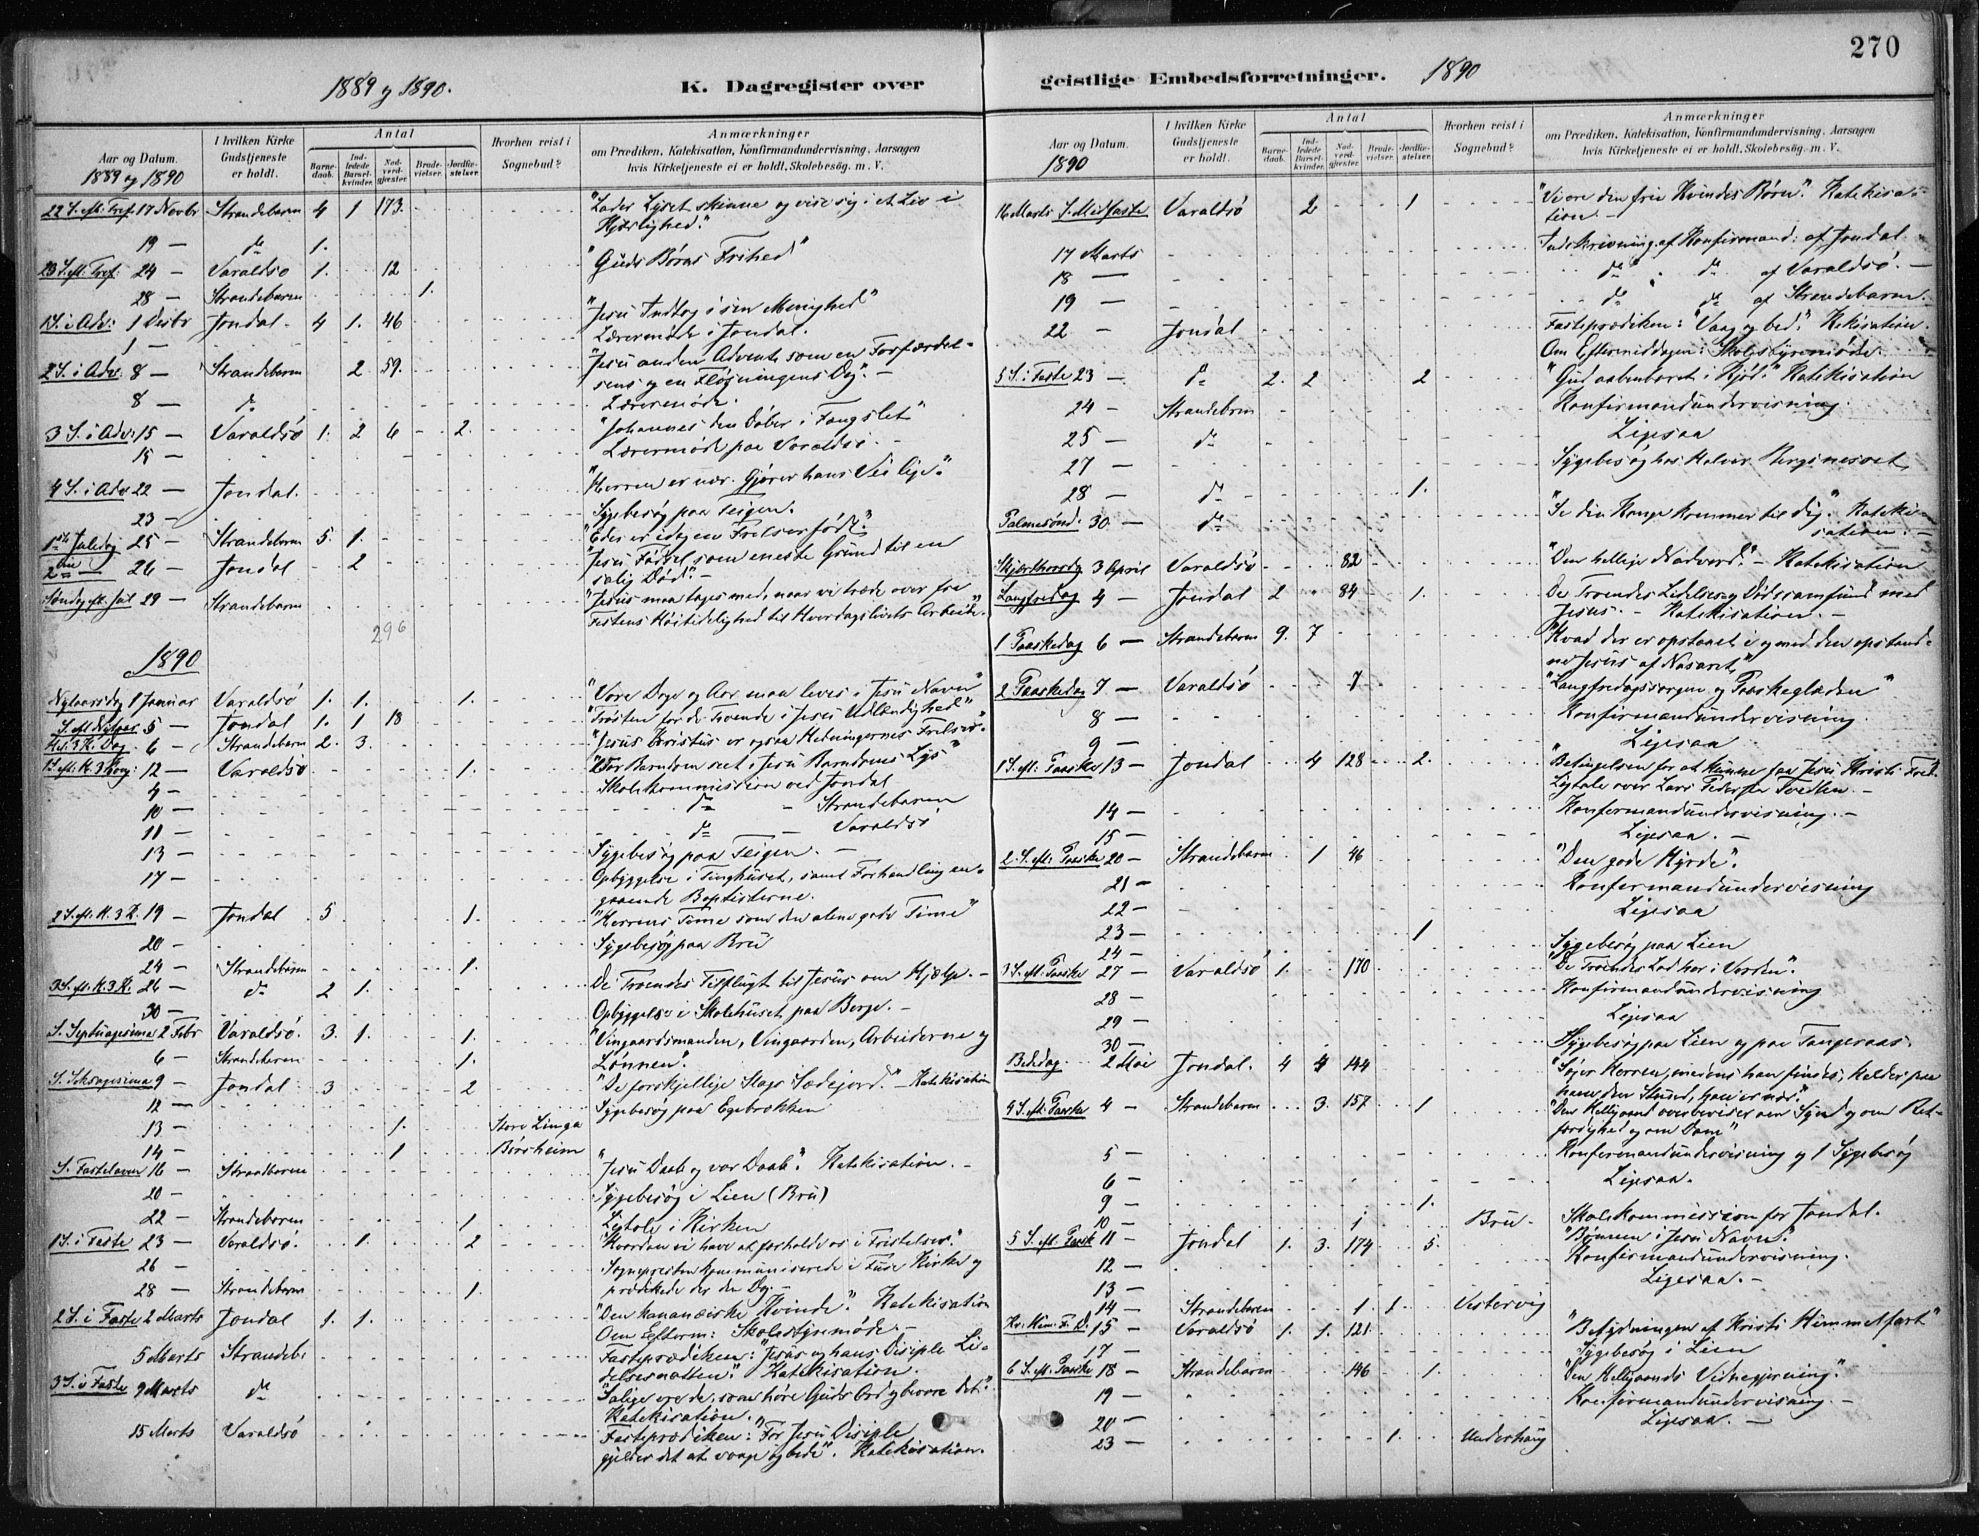 270
1889 og 1890. K. Dagregister over
geistlige Embedsforretninger. 1890
Aar og Datum. 1889 og 1890
I hvilken Kirke Gudstjeneste er holdt.
Antal
Barnedaab.
Indledede Barselkvinder.
Nadverdgjæster.
Brudevielser.
Jordfæstelser.
Hvorhen reist i Sognebud?
Anmærkninger
om Prædiken, Katekisation, Konfirmandundervisning. Aarsagen
hvis Kirketjeneste ei er holdt. Skolebesøg. m. V.
22 S. eft. Tref. 17 Novbr Strandebarm 4 1 173. "Lader Lyset skinne og vise sig i et Liv i
Kjærlighed."
19 — do 1.
23 S. eft. Tref: 24 — Varaldsø 1. 12 "Guds Børns Frihed"
28 — Strandebarm 1.
1 S. i Adv: 1 Desbr Jondal 4 1. 46 "Jesu Indtog i sin Menighed"
1 — Læremøde i Jondal.
2 S. i Adv: 8 — Strandebarm 2 59. "Jesu anden Advent som en Forfærdel-
sens og en Dag". —
8 — do Læremøde.
3 S. i Adv: 15 — Varaldsø 1. 2 6 2. "Johannes den Døber i Fængslet"
15 — Læremøde paa Varaldsø. —
4 S. i Adv 22 — Jondal. "Herren er nær. Gjører hans Vei lige."
23 — Sygebesøg paa Teigen.
1ste Juledag 25 — Strandebarm 5 1. "Eder er idag en Frelser født."
2den — 26 — Jondal 2 "Jesu Fødsel som eneste Grund til en
salig Død". —
Søndag eft. Jul 29 — Strandebarm "Jesus maa tages med, naar vi træde over fra
Festens Høitidelighed til Hverdagslivets Arbeide".
296
1890
Nytaarsdag 1 Januar Varaldsø 1. 1. 1. "Vore Dage og Aar maa leves i Jesu Navn"
S. eft Nytaar 5 — Jondal 1. 1 18 "Trøsten for de Troende i Jesu Udlændighed"
Hel. 3 K. Dag. 6 — Strandebarm 2. 3. "Jesus Kristus er ogsaa Hedningernes Frelser".
1 S. eft. H. 3 Kong: 12 — Varaldsø 1. "Vor Barndom seet i Jesu Barndoms Lys"
9 — Skolekommission ved Jondal
10 — do — Strandebarm
11 — do — Varaldsø
13 — Sygebesøg paa Teigen. —
17 — Opbyggelse i Tinghuset, samt Forhandling an-
gaaende Baptisterne.
2 S. eft. H. 3 K. 19 — Jondal 5 1. "Herrens Time som den alene gode Time"
20 — Sygebesøg paa Bru
24 — Strandebarm 1.
3 S. eft. H. 3 K. 26 — do 2 1. De Troendes Tilflugt til Jesus om Hjælp. —
30 — Opbyggelse i Skolehuset paa Berge. —
S. Septuagesima 2 Febr Varaldsø. 3. 1. 1. "Vingaardsmanden, Vingaarden, Arbeiderne og
6 — Strandebarm 1. Lønnen".
S. Seksagesima 9 — Jondal 3 2 "De forskjellige Slags Sædejord." — Katekisation
12 — Sygebesøg paa Egebrokken
13 — 1. Store Linga
14 — 1 Børsheim
S. Fastelavn 16 — Strandbarm "Jesu Daab og vor Daab". Katekisation. —
20 — Sygebesøg i Lien (Bru)
22 — Strandebarm 1 Ligtale i Kirken
1 S. i Faste 23 — Varaldsø. 1. 2 "Hvordan vi have at forholde os i Fristelser."
26 — Sognepresten kommunicerede i Fuse Kirke og
28 — Strandebarm 1. prædikede der den Dag. —
2 S. i Faste 2 Marts Jondal 1. 1. "Den kananæiske Kvinde". Katekisation
Om Efterm: Skolestyremøde. —
5 Marts Strandeb: Fasteprædiken: "Jesus og hans Disciple Li-
delsesnatten". Katekisation.
3 S. i Faste 9 Marts do "Salige ere de, som høre Guds Ord og bevare det".
Katekisation.
15 Marts Varaldsø Fasteprædiken: "For Jesu Disciple
gjelder det at vaage og bede". Katekisation.
Aar og Datum. 1890
I hvilken Kirke Gudstjeneste er holdt.
Antal
Barnedaab.
Indledede Barselkvinder.
Nadverdgjæster.
Brudevielser.
Jordfæstelser.
Hvorhen reist i Sognebud?
Anmærkninger
om Prædiken, Katekisation, Konfirmandundervisning. Aarsagen
hvis Kirketjeneste ei er holdt. Skolebesøg. m. V.
16 Marts S. Midfaste Varaldsø 2 1 "Vi ere den frie Kvindes Børn". Katekisa-
tion. —
17 Marts Indskrivning af Konfirmand: af Jondal.
18 — do do af Varaldsø. —
19 — do do af Strandebarm.
22 — Jondal Fasteprædiken: "Vaag og bed." Katekisation.
Om Eftermiddagen: Skolestyremøde.
5 S. i Faste 23 — do 2. 2 2 "Gud aabenbaret i Kjød." Katekisation
24 — Strandebrm Konfirmandundervisning.
25 — do Ligesaa
27 — Sygebesøg hos Halvor
28 — do 1.
Palmesønd. 30 — do "Se din Konge kommer til dig." Kateki-
sation. —
Skjærthorsdg 3 April Varaldsø 82 "Den hellige Nadverd." — Katekisation
Langfredag 4 — Jondal 2 84 1. De Troendes Lidelses og Dødssamfund med
Jesus. — Katekisation. —
1 Paaskedag 6 — Strandebarm 9. 7 "Hvad der er opstanet i og med den opstand-
ne Jesus af Nasaret"
2 Paaskedag 7 — Varaldsø 7 "Langfredagssorgen og Paaskeglæden"
8 — Konfirmandundervisning.
9 — Ligesaa
1 S. eft. Paaske 13 — Jondal 4 128 2. "Betingelsen for at kunne faa Jesu Kristi Fred.
Ligtale over Lars Pedersen Tveden. —
14 — Konfirmandundervisning. —
15 — Ligesaa. —
2. S. eft. Paaske 20 — Strandebarm 1 46 "Den gode Hyrde".
21 — Konfirmandundervisning
22 — Ligesaa
23 — 1
24 — Sygebesøg paa Lien
3 S. eft. Paaske 27 — Varaldsø 1. 170 "De Troendes Lod her i Verden".
28 — Konfirmandundervisning
29 — Ligesaa
30 — Sygebesøg paa Lien og paa Tangeraas.
Bededag. 2 Mai Jondal. 4 4 144 "Søger Herren, medens han findes, kalder paa
ham den Stund, han er nær".
4 S. eft. Paaske 4 — Strandebarm 3. 157 1 "Den Helligaand overbeviser om Synd og om Ret-
færdighed og om Dom"
5 — Konfirmandundervisning og 1 Sygebesøg
6 — Ligesaa.
9 — 1.
10 — 1 Bru. Skolekommission for Jondal.
5 S. eft. Paask 11 — Jondal 1. 3. 174 5. "Bønnen i Jesu Navn."
12 — Konfirmandundervisning.
13 — Ligesaa. —
14 — Strandebarm 1 1 Vestervig
Kr. Him. F. D. 15 — Varaldsø 1. 1. 121. "Betydningen af Kristi Himmelfart"
17 — Sygebesøg i Lien
6 S. eft. Paaske 18 — Strandebarm 146 1. "Den Helligaands Vidnegjerning."
19 — Konfirmandundervisning. —
20 — Ligesaa. —
23 — 1. Underhaug